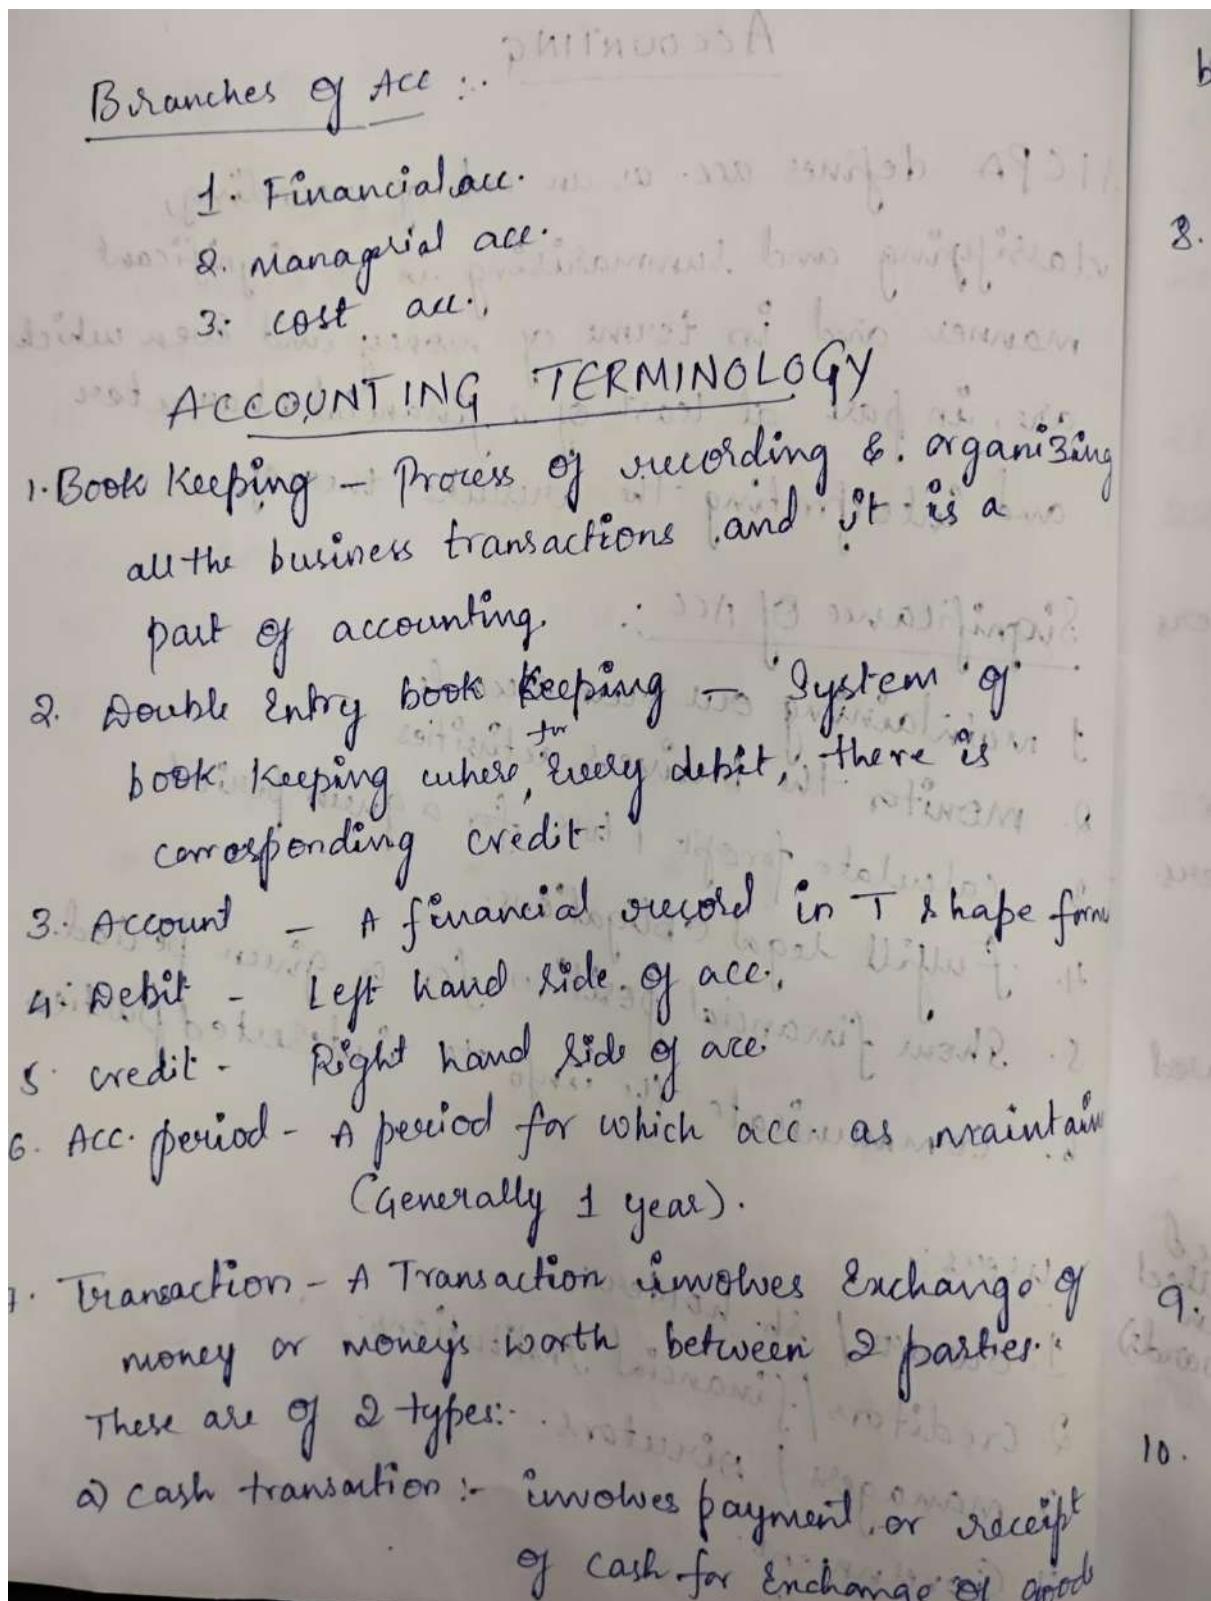 Branches of Acc :-
1. Financial acc.
2. Managerial acc.
3. cost acc.
ACCOUNTING TERMINOLOGY
1. Book Keeping - Process of recording & organizing
all the business transactions and it is a
part of accounting.
2. Double Entry book keeping - System of
for
book keeping where, Every debit, there is
corresponding credit.
3. Account - A financial record in T shape form
4. Debit - Left hand side of acc.
5. credit - Right hand side of acc.
6. Acc. period - A period for which acc. as maintain
(Generally 1 year).
7. Transaction - A Transaction involves Exchange of
money or money's worth between 2 parties.
These are of 2 types:-
a) cash transaction :- involves payment or receipt
of cash for Exchange of goods
b
8.
9.
10.